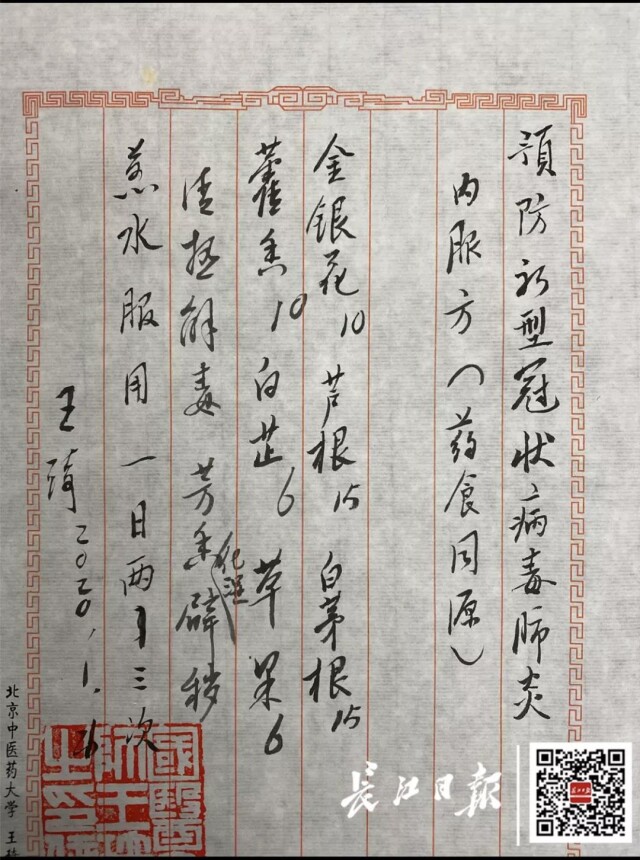 预防新型冠状病毒肺炎
内服方（药食同源）
金银花10 芦根15 白茅根15
藿香10 白芷6 草果6
清热解毒 芳香化湿辟秽
煎水服用 一日两到三次
王琦 2020.1.26
北京中医药大学 王琦
國醫
长江日报